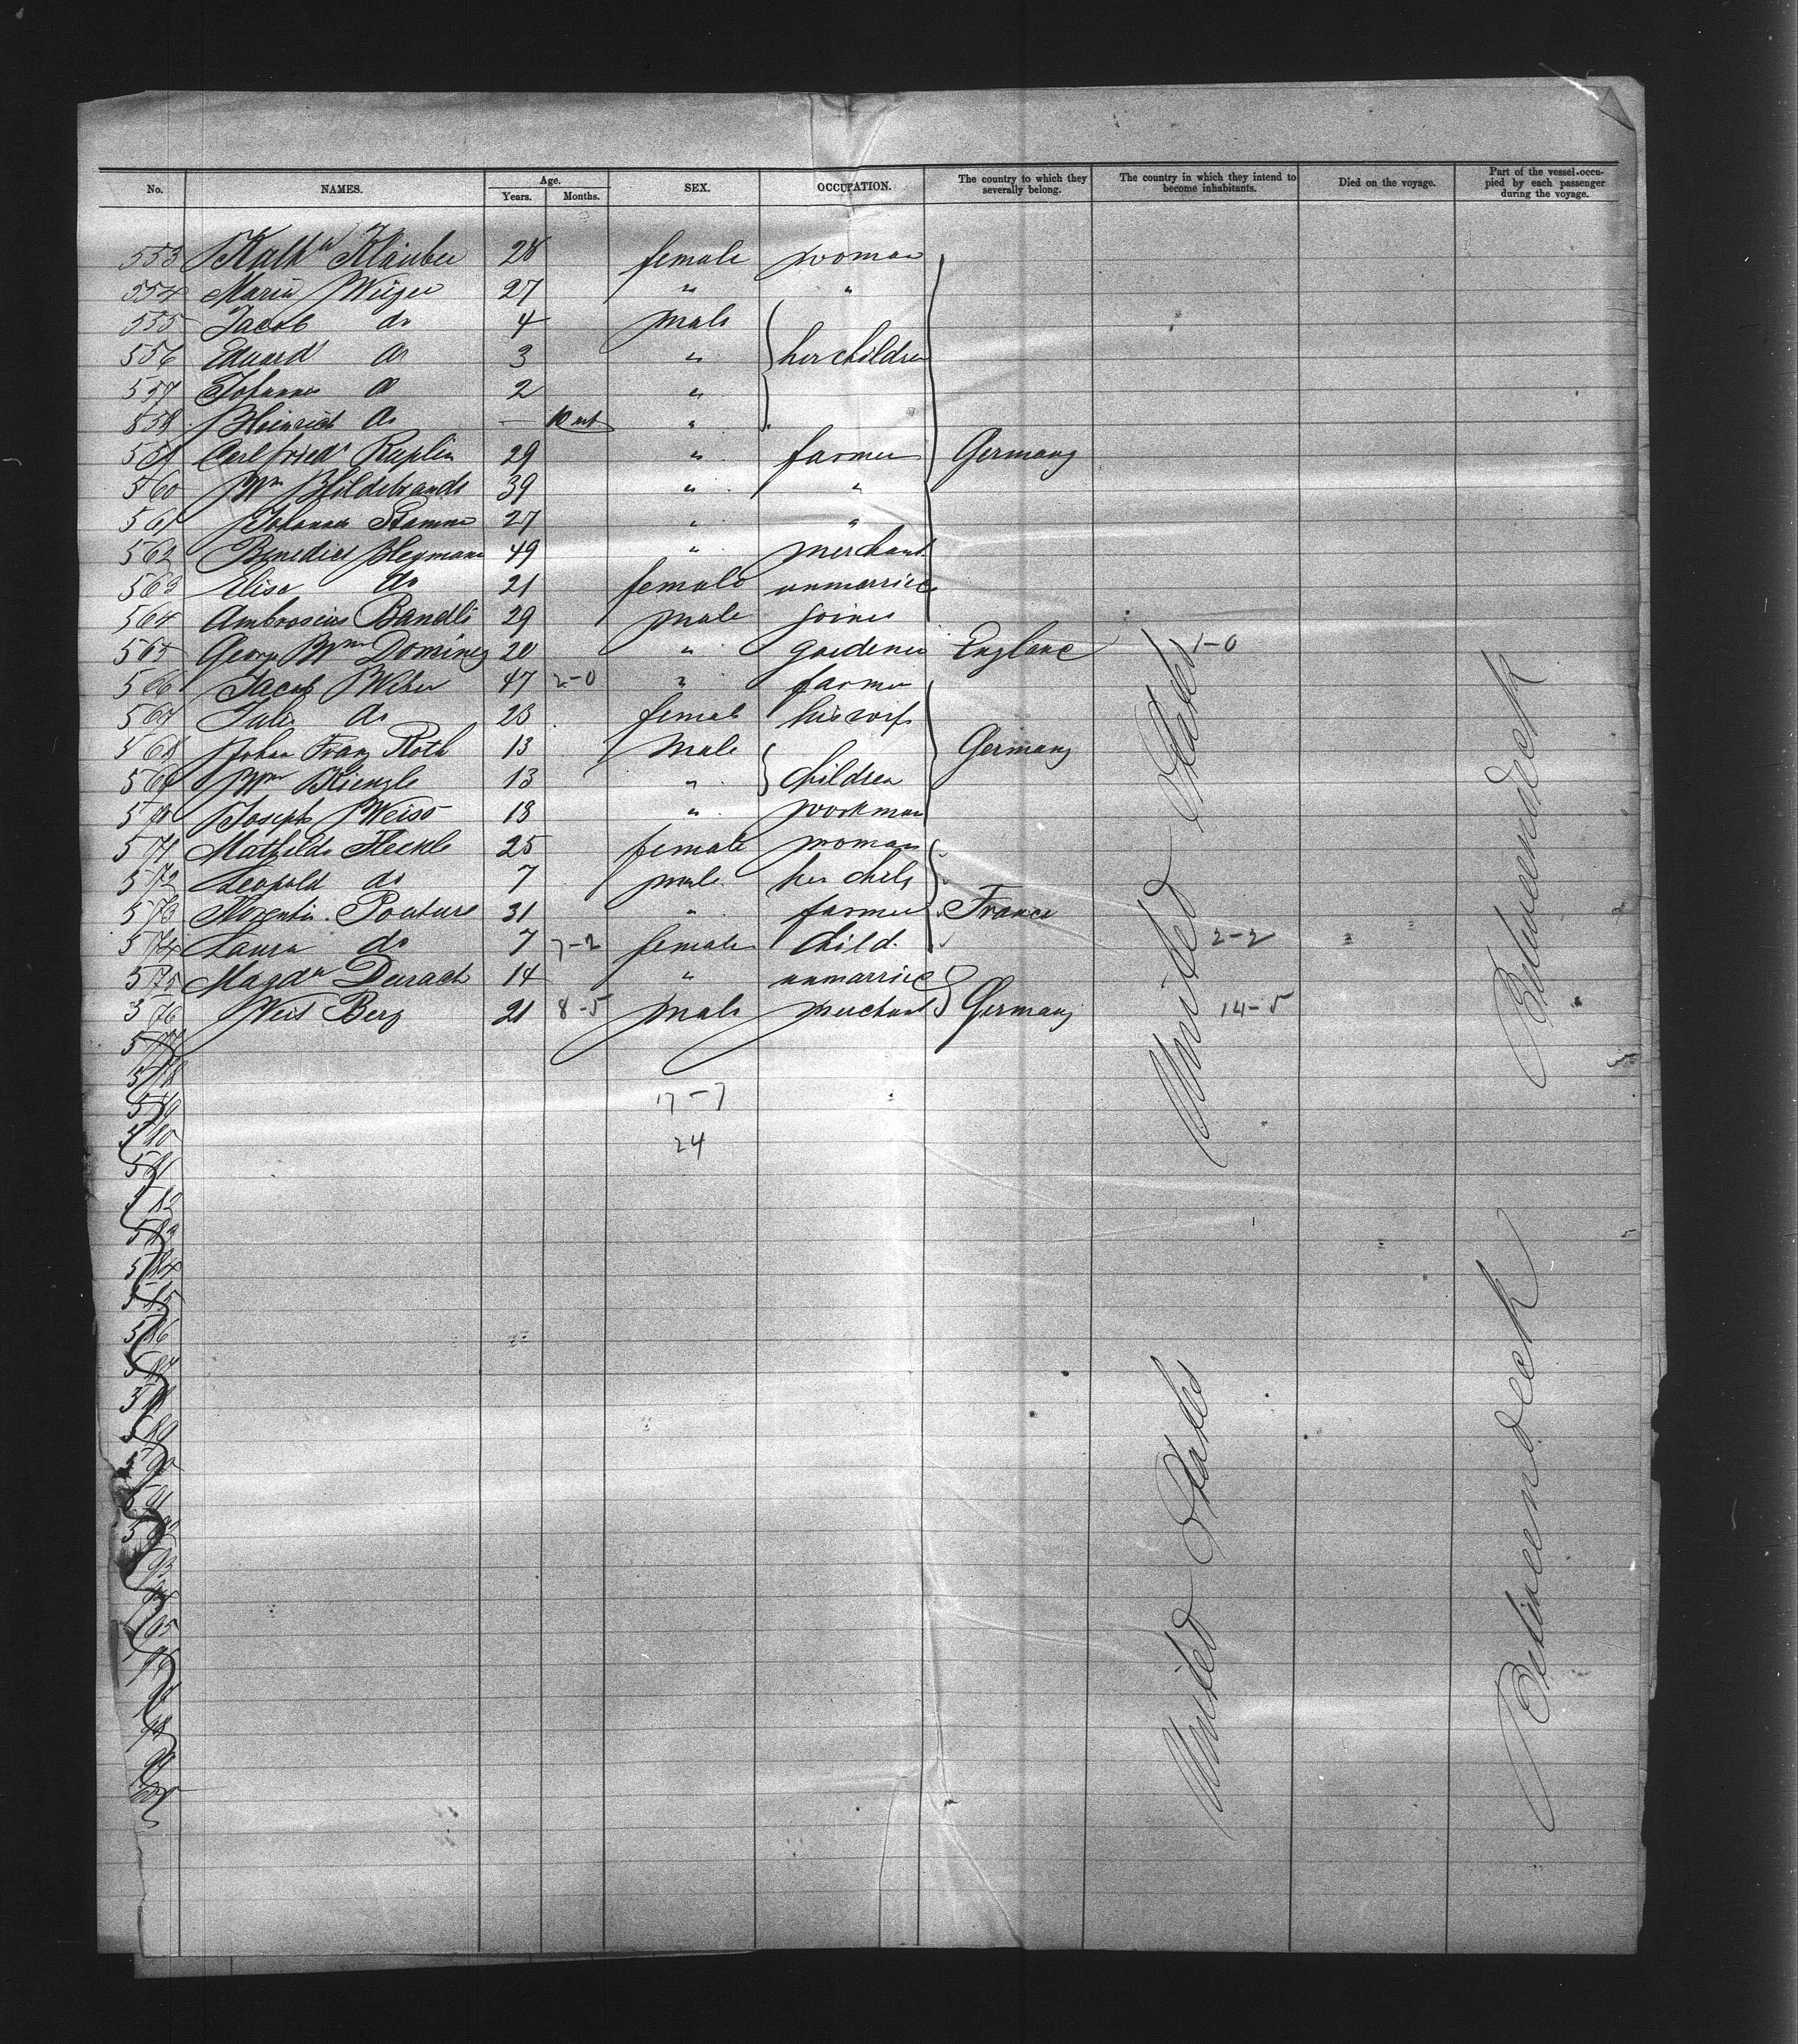 No. NAMES. Age. Years. Months. SEX. OCCUPATION. The country to which they severally belong. The country in which they intend to become inhabitants. Died on the voyage. Part of the vessel occupied by each passenger during the voyage.
553 Kath 28 female woman
554 Maria 27 " "
555 Jacob do 4 male
556 Eduard do 3 " her children
557 Johannes do 2 "
558 Heinrich do — 10 mt "
559 Carl Fried 29 " farmer Germany
560 Wm Hildebrandt 39 " "
561 Johannes Stamm 27 " "
562 Benedict Heymann 49 " merchant
563 Elise do 21 female unmarried
564 Ambrosius Bandli 29 male joiner
565 Georg Wm Dominey 20 " gardener England 1-0
566 Jacob Weber 47 2-0 " farmer
567 Julie do 23 female his wife
568 Johan Franz Roth 13 male Germany
569 Wm Kienzle 13 " children
570 Joseph Weiss 18 " workman
571 Mathilde Heckle 25 female woman
572 Leopold do 7 male her child
573 31 " farmer France
574 Laura do 7 7-2 female child 2-2
575 Magdn Durach 14 " unmarried
576 Berg 21 8-5 male merchant Germany 14-5
577
578
579 17-7
580 24
581
582
583
584
585
586
587
588
589
590
United States
Betweendeck
United States
Betweendeck